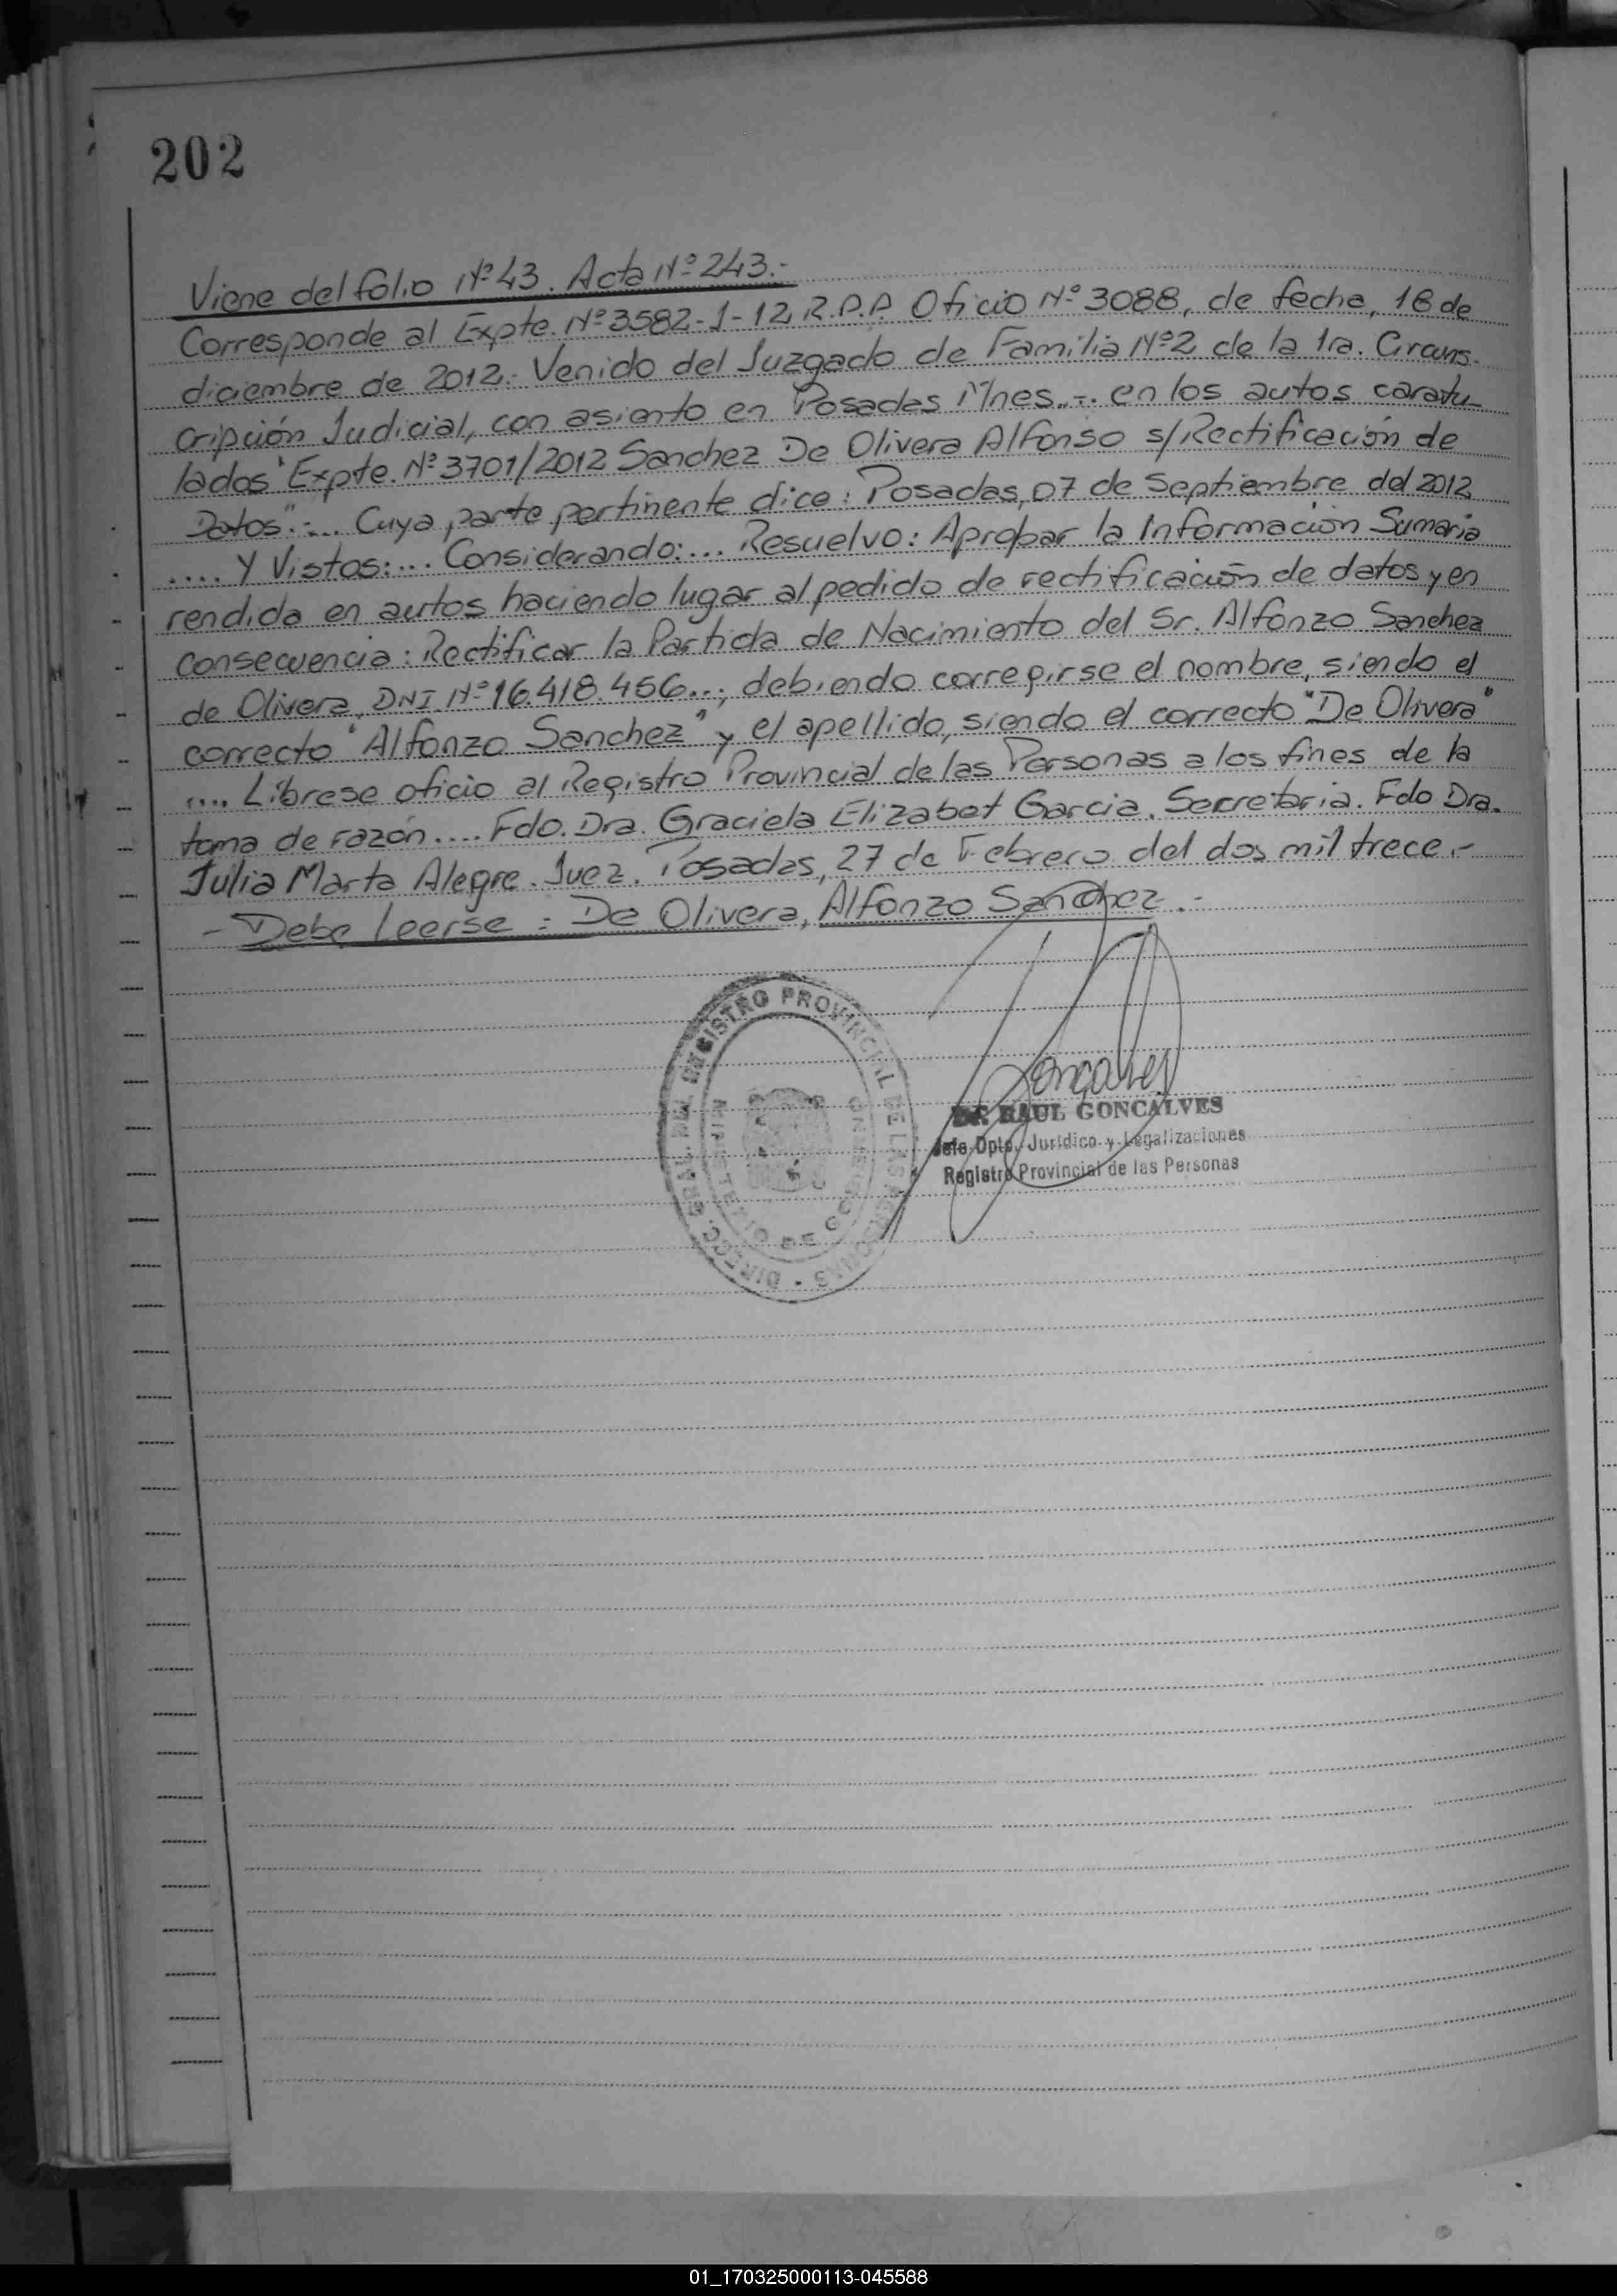 202
Viene del folio Nº 43. Acta Nº 243.-
Corresponde al Expte. Nº 3582-J-12 R.P.P. Oficio Nº 3088, de fecha, 18 de
diciembre de 2012.- Venido del Juzgado de Familia Nº 2 de la 1ra. Circuns-
cripción Judicial, con asiento en Posadas Mnes.-. en los autos caratu
lados "Expte. Nº 3701/2012 Sanchez De Olivera Alfonso s/Rectificación de
Datos".-... Cuya parte pertinente dice: Posadas, 07 de Septiembre del 2012
.... Y Vistos:... Considerando:... Resuelvo: Aprobar la Información Sumaria
rendida en autos haciendo lugar al pedido de rectificación de datos y en
consecuencia: Rectificar la Partida de Nacimiento del Sr. Alfonzo Sanchez
de Olivera, DNI Nº 16.418.456..., debiendo corregirse el nombre, siendo el
correcto "Alfonzo Sanchez" y el apellido, siendo el correcto "De Olivera"
.... Librese oficio al Registro Provincial de las Personas a los fines de la
toma de razón.... Fdo. Dra. Graciela Elizabet Garcia. Secretaria. Fdo Dra.
Julia Marta Alegre. Juez. Posadas, 27 de Febrero del dos mil trece.-
- Debe leerse: De Olivera, Alfonzo Sanchez.-
DIRECC. GRAL. DEL REGISTRO PROVINCIAL DE LAS PERSONAS
MINISTERIO DE GOBIERNO
Goncalves
Dr. RAUL GONCALVES
Jefe Dpto. Jurídico y Legalizaciones
Registro Provincial de las Personas
01_170325000113-045588